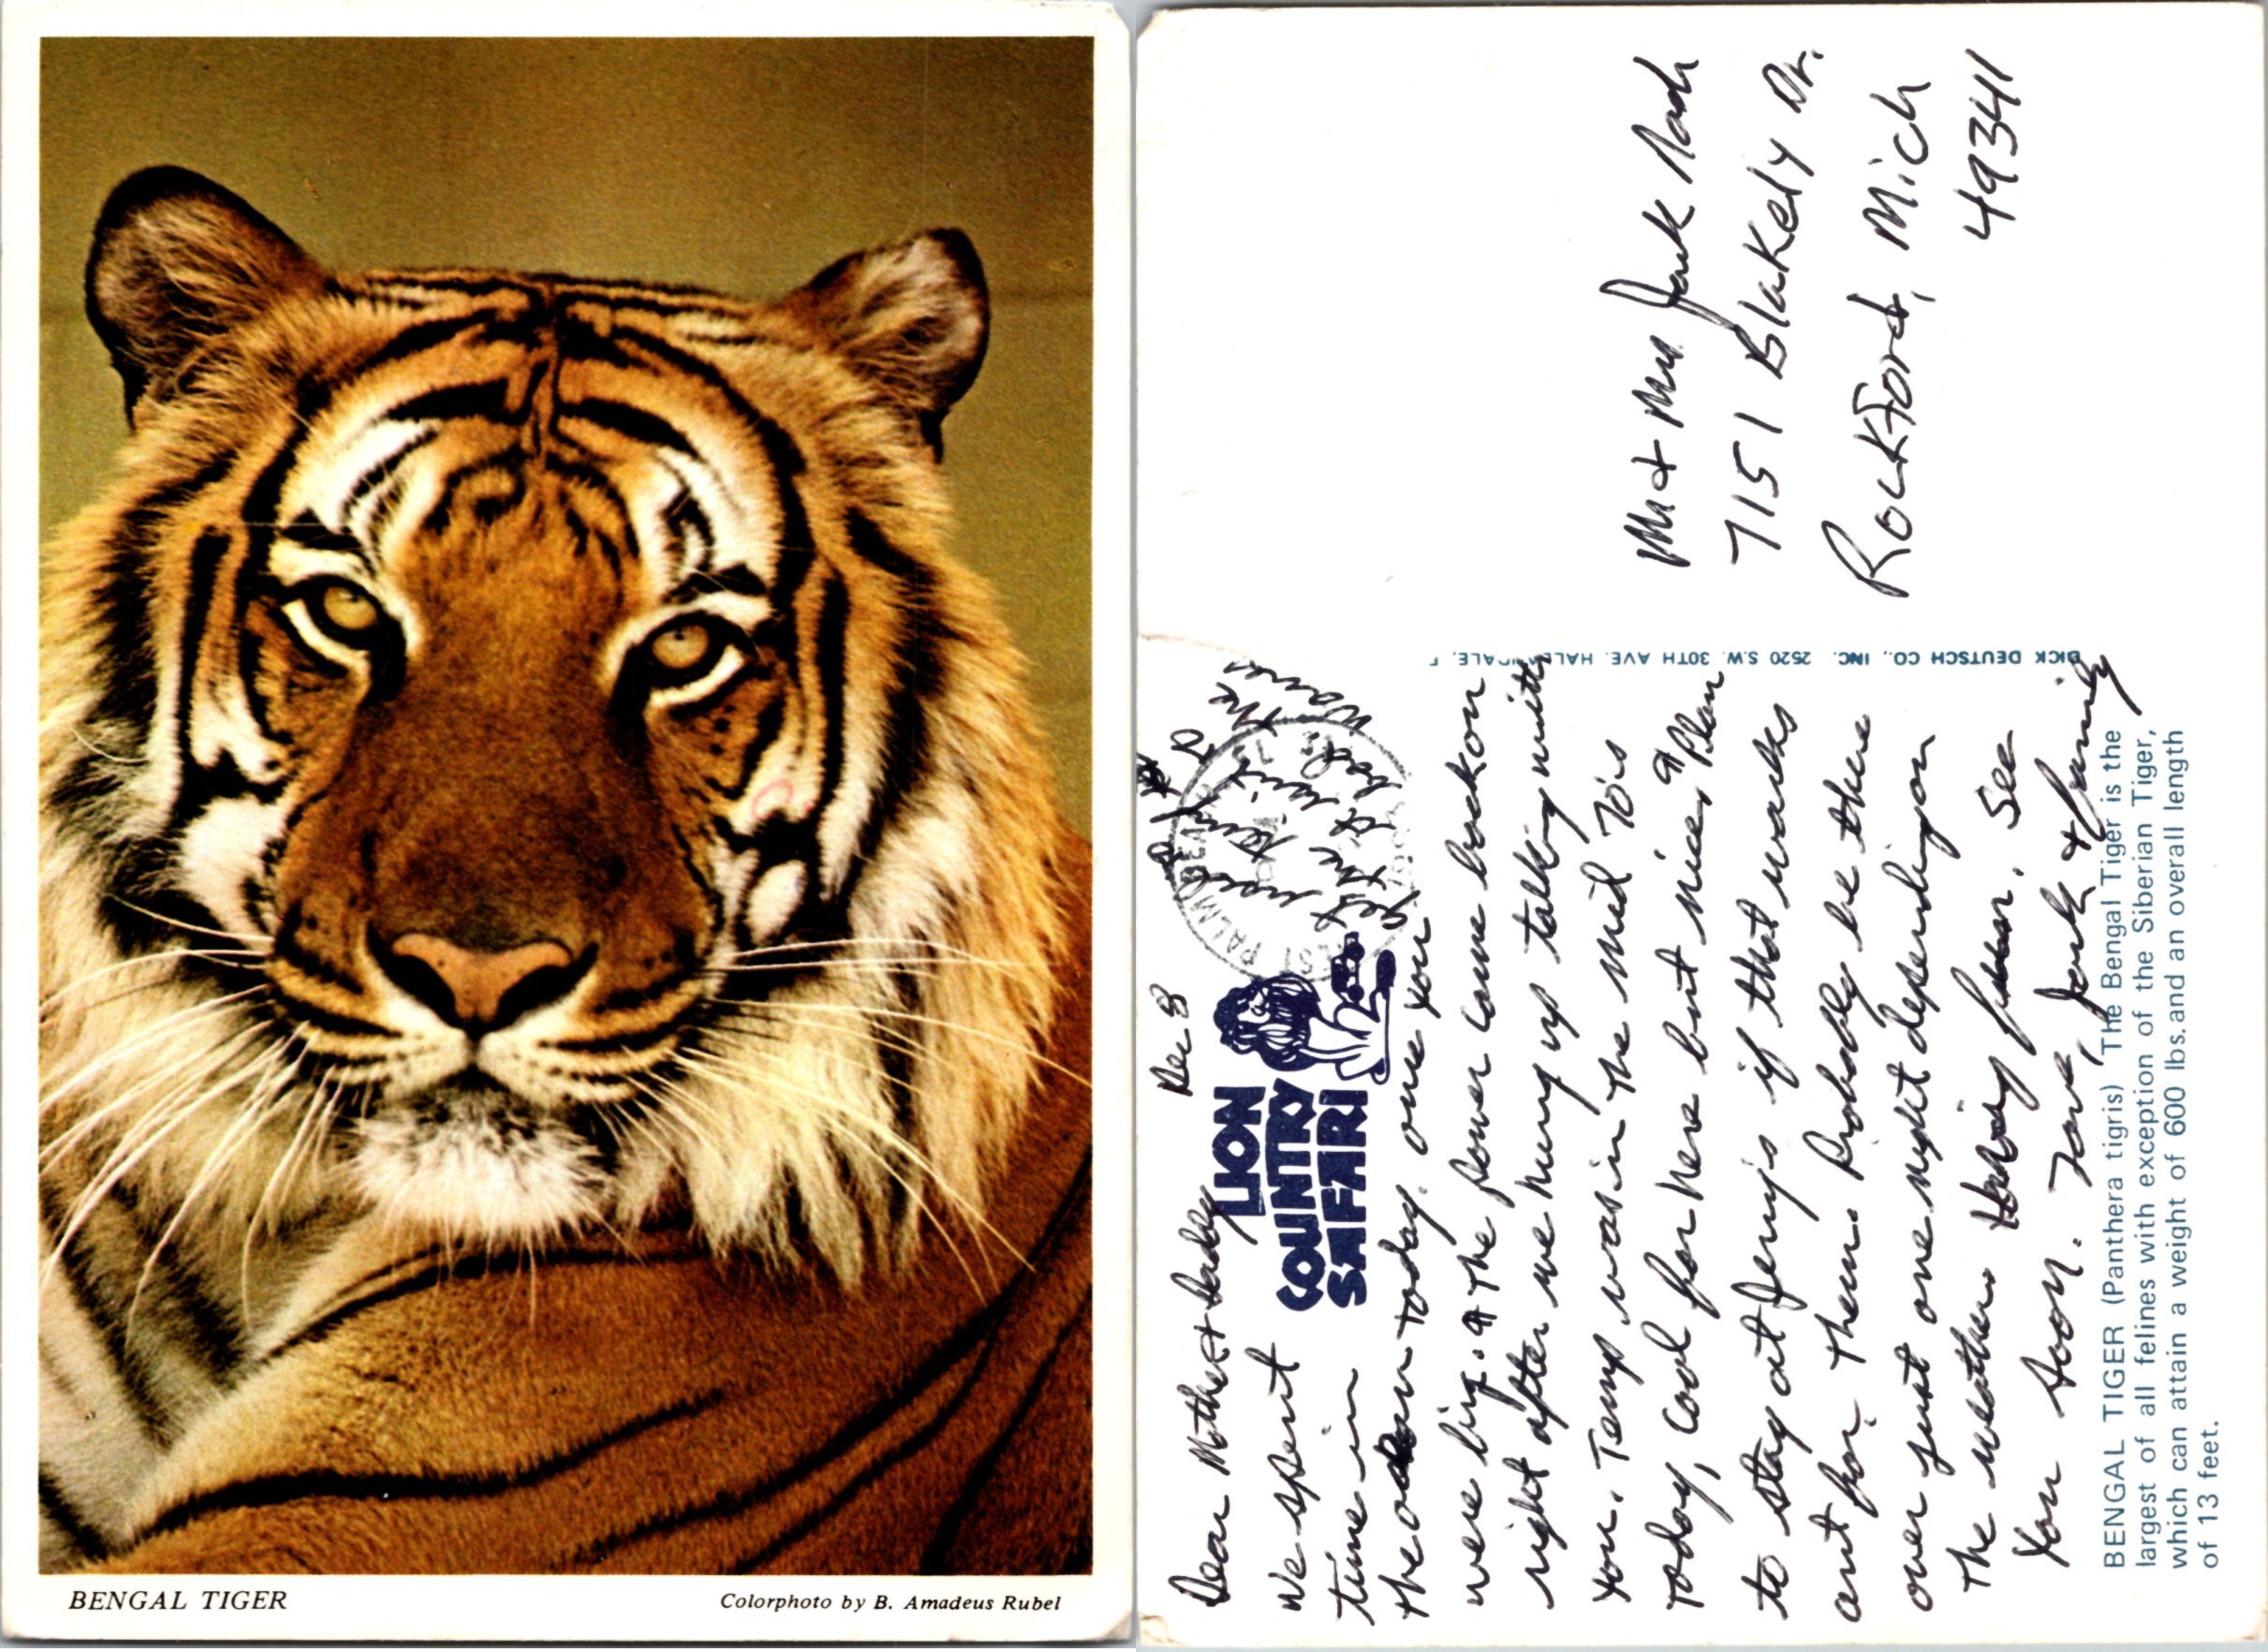 BENGAL TIGER
Colorphoto by B. Amadeus Rubel
Dec 8
Dear Mother + Daddy
LION
COUNTRY
SAFARI
We spent
time in
the ocean today. our you
were big. The power came back on
right after we hung up talking with
you. Temp was in the mid 70's
today, cool for here but nice. Plan
to stay at Jerry's if that works
out for them. Probably be there
over just one night depending on
the weather. Having fun. See
you soon. Love, Jack & family
PALM BEACH
BENGAL TIGER (Panthera tigris) The Bengal Tiger is the
largest of all felines with exception of the Siberian Tiger,
which can attain a weight of 600 lbs. and an overall length
of 13 feet.
DICK DEUTSCH CO., INC. 2520 S.W. 30TH AVE.
Mr + Mrs Jack
7151 Blakely Dr.
Rockford, Mich
49341